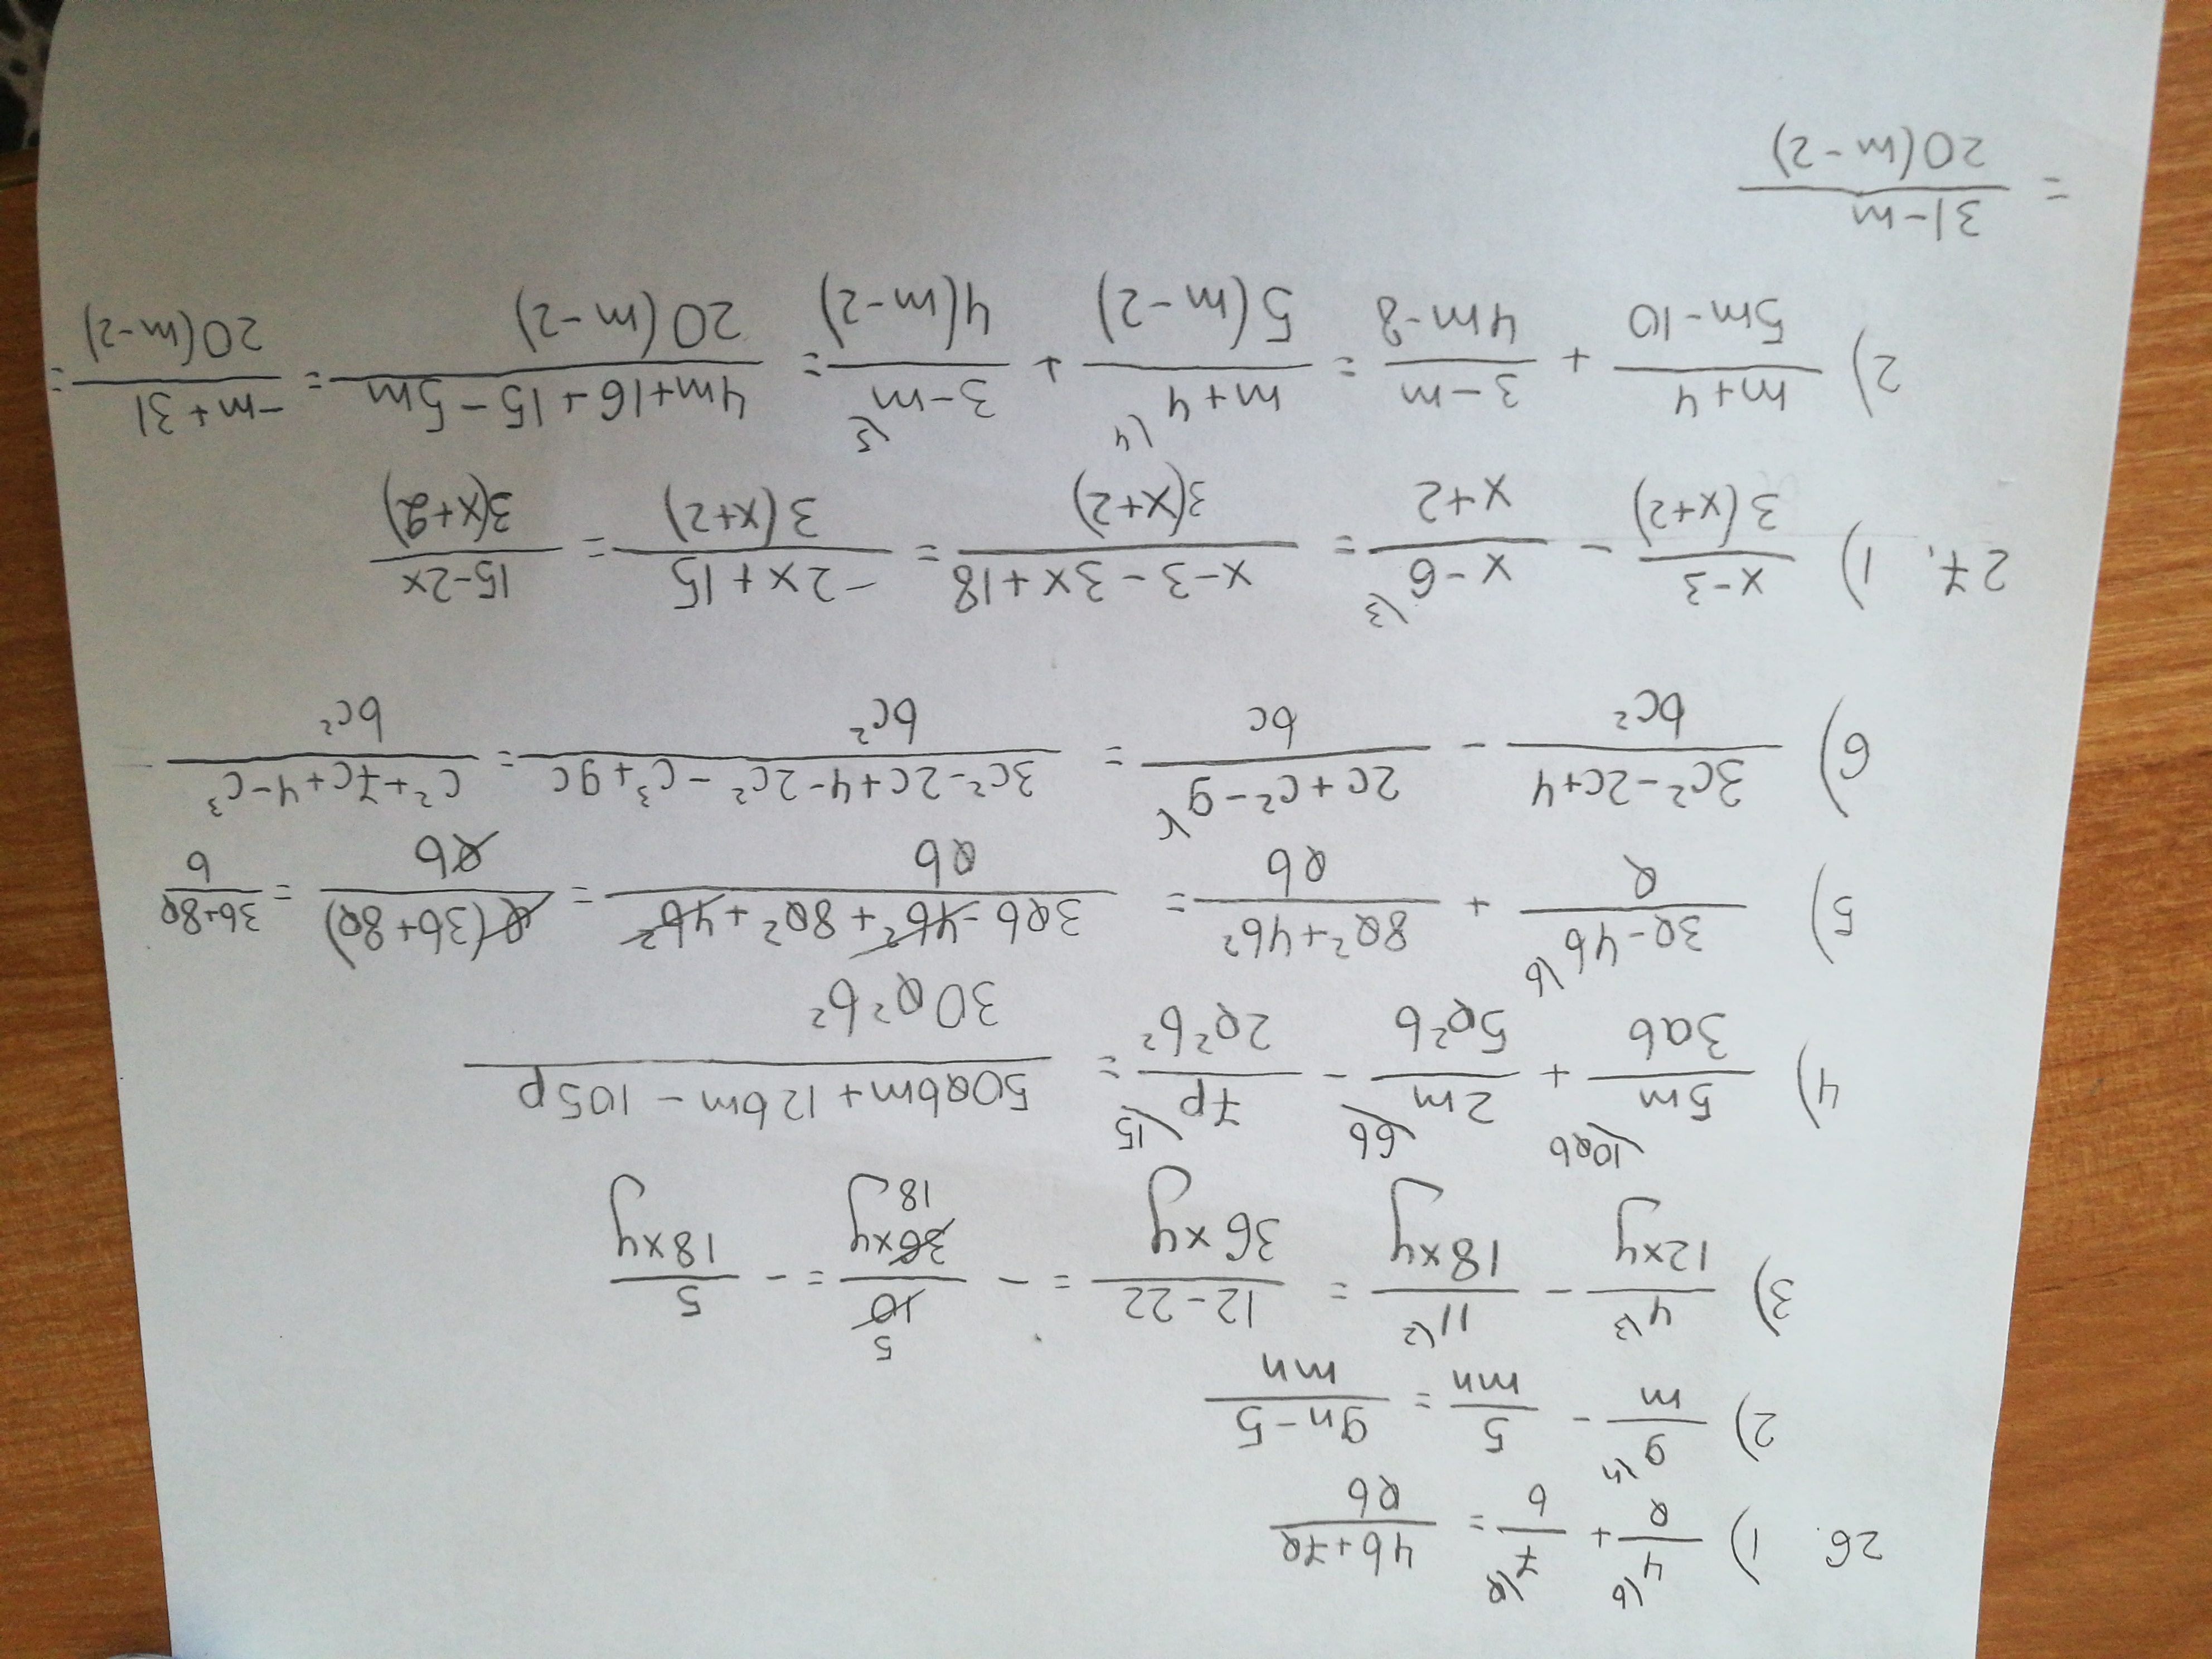 26. 1) 4\b/a + 7\a/b = (4b+7a)/ab
2) 9\n/m - 5/mn = (9n-5)/mn
3) 4\3/12xy - 11\2/18xy = (12-22)/36xy = - 10/36xy = - 5/18xy
5 18
4) 5m\10ab/3ab + 2m\6b/5a²b - 7p\15/2a²b² = (50abm+12bm-105p)/30a²b²
5) (3a-4b)\b/a + (8a²+4b²)/ab = (3ab-4b²+8a²+4b²)/ab = a(3b+8a)/ab = (3b+8a)/b
6) (3c²-2c+4)/bc² - (2c+c²-9)\c/bc = (3c²-2c+4-2c²-c³+9c)/bc² = (c²+7c+4-c³)/bc²
27. 1) (x-3)/3(x+2) - (x-6)\3/(x+2) = (x-3-3x+18)/3(x+2) = (-2x+15)/3(x+2) = (15-2x)/3(x+2)
2) (m+4)/(5m-10) + (3-m)/(4m-8) = (m+4)\4/5(m-2) + (3-m)\5/4(m-2) = (4m+16+15-5m)/20(m-2) = (-m+31)/20(m-2) =
= (31-m)/20(m-2)